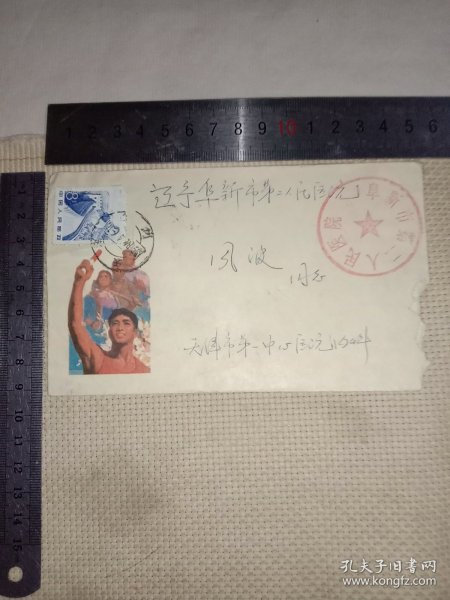 1 2 3 4 5 6 7 8 9 10 11 12 13 14 15
辽宁阜新市第二人民医院
阜新市第二人民医院
8
中国人民邮政
凤波
同志
天津市第一中心医院
1 2 3 4 5 6 7 8 9 10 11 12 13 14 15
孔夫子旧书网
www.kongfz.com